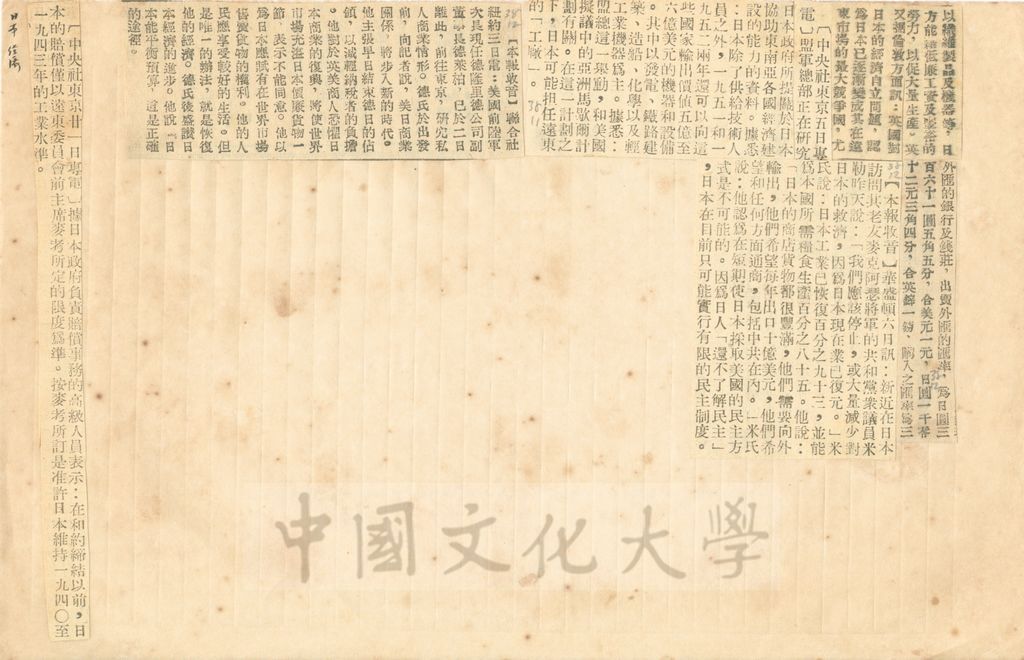 以纖維製品及機器等，日
方能達低廉工資及緊密的
勞力，以從大量生產。英
又據倫敦方面訊：英國對
日本的經濟自立問題，認
為日本已逐漸變成其在遠
東市場的最大競爭國，尤
〔中央社東京五日專
電〕盟軍總部正在研究
日本政府所提關於日本
協助東南亞各國經濟建
設的能力的資料。據悉
，日本除了供給技術人
員之外，一九五一和一
九五二兩年還可以向這
些國家輸出價值五億至
六億美元的機器和設備
。其中以發電、鐵路建
築、造船、化學以及輕
工業機器為主。據悉：
盟總這一舉動，和美國
擬議中的亞洲馬歇爾計
劃有關。在這一計劃之
下，日本可能担任遠東
的「工廠」。
【本報收音】聯合社
紐約三日電：美國前陸軍
次長現任德隆里德公司副
董事長德萊泊，已於二日
離此，前往東京，研究私
人商業情形。德氏於出發
前，向記者說，美日商業
關係，將步入新的時代。
他主張早日結束德日的佔
領，以減輕納稅者的負擔
。他對於英美商人恐懼日
本商業的復興，將使世界
市場充滿日本價廉貨物一
節，表示不能同意。他以
為日本應賦有在世界市場
售賣貨物的權利。他的人
民應享受較好的生活。但
是唯一的辦法，就是恢復
他的經濟。德氏後盛讚日
本經濟的進步。他說「日
本能平衡預算，這是正確
的途徑。
外匯的銀行及錢莊，出賣外匯的匯率，為日圓三
百六十一圓五角五分，合美元一元，日圓一千零
十二元三角四分，合英鎊一鎊，購入之匯率為三
【本報收音】華盛頓六日訊：新近在日本
訪問其老友麥克阿瑟將軍的共和黨衆議員米
勒昨天說：「我們應該停止，或大量減少對
日本的救濟，因爲日本現在業已復元。」米
氏說：日本工業已恢復百分之九十三，並能
爲本國所需糧食生產百分之八十五。他說：
「日本的商店貨物都很豐滿，他們需要向外
輸出，他們希望每年出口十億美元，他們希
望和任何方面通商，包括中共在內。」米氏
說：他認爲在短期使日本採取美國的民主方
式是不可能的。因爲日人「還不了解民主」
，日本在目前只可能實行有限的民主制度。
〔中央社東京廿一日專電〕據日本政府負責賠償事務的高級人員表示：在和約締結以前，日
本的賠償僅以遠東委員會前主席麥考所定的限度爲準。按麥考所訂是准許日本維持一九四〇至
一九四三年的工業水準。
日本 經濟
中國文化大學